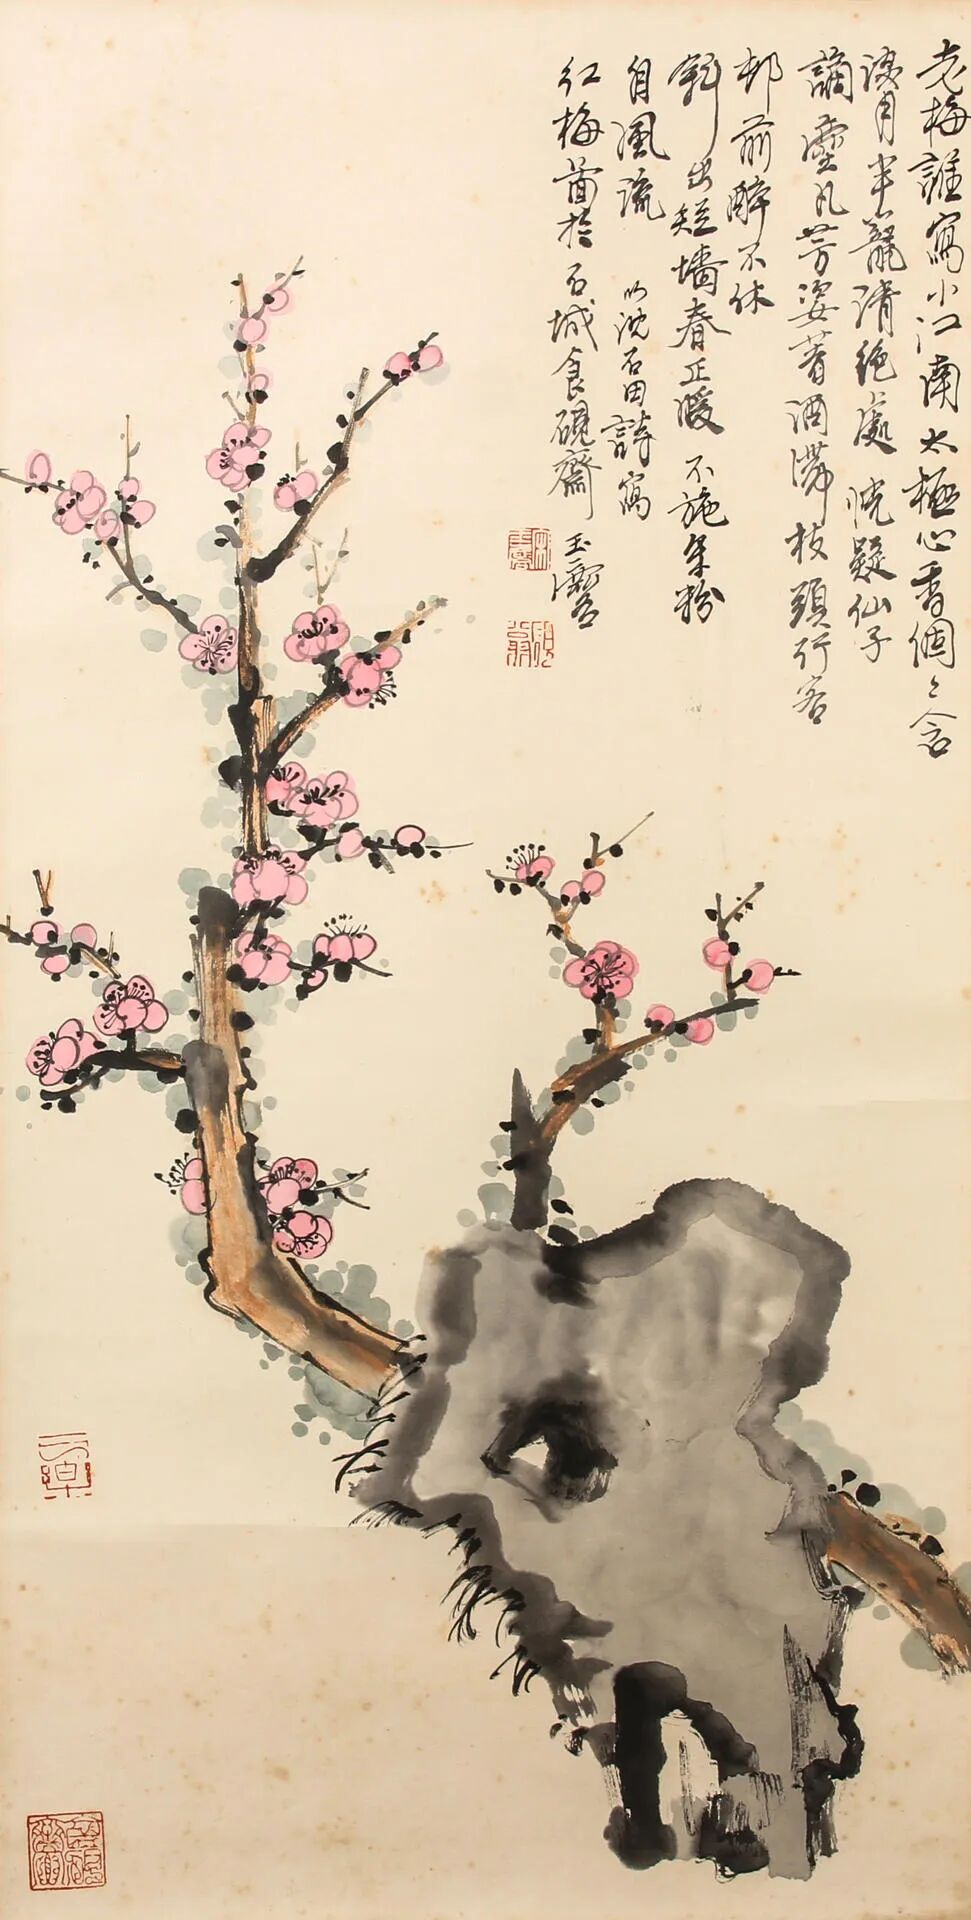 老梅誰寫小江南太極心香個々含
淡月半籠清絕處恍疑仙子
謫塵凡芳姿著酒滯枝頭行客
邨前醉不休
斜出短墻春正暖不施朱粉
自風流 以沈石田詩寫
紅梅圖於石城食硯齋 玉